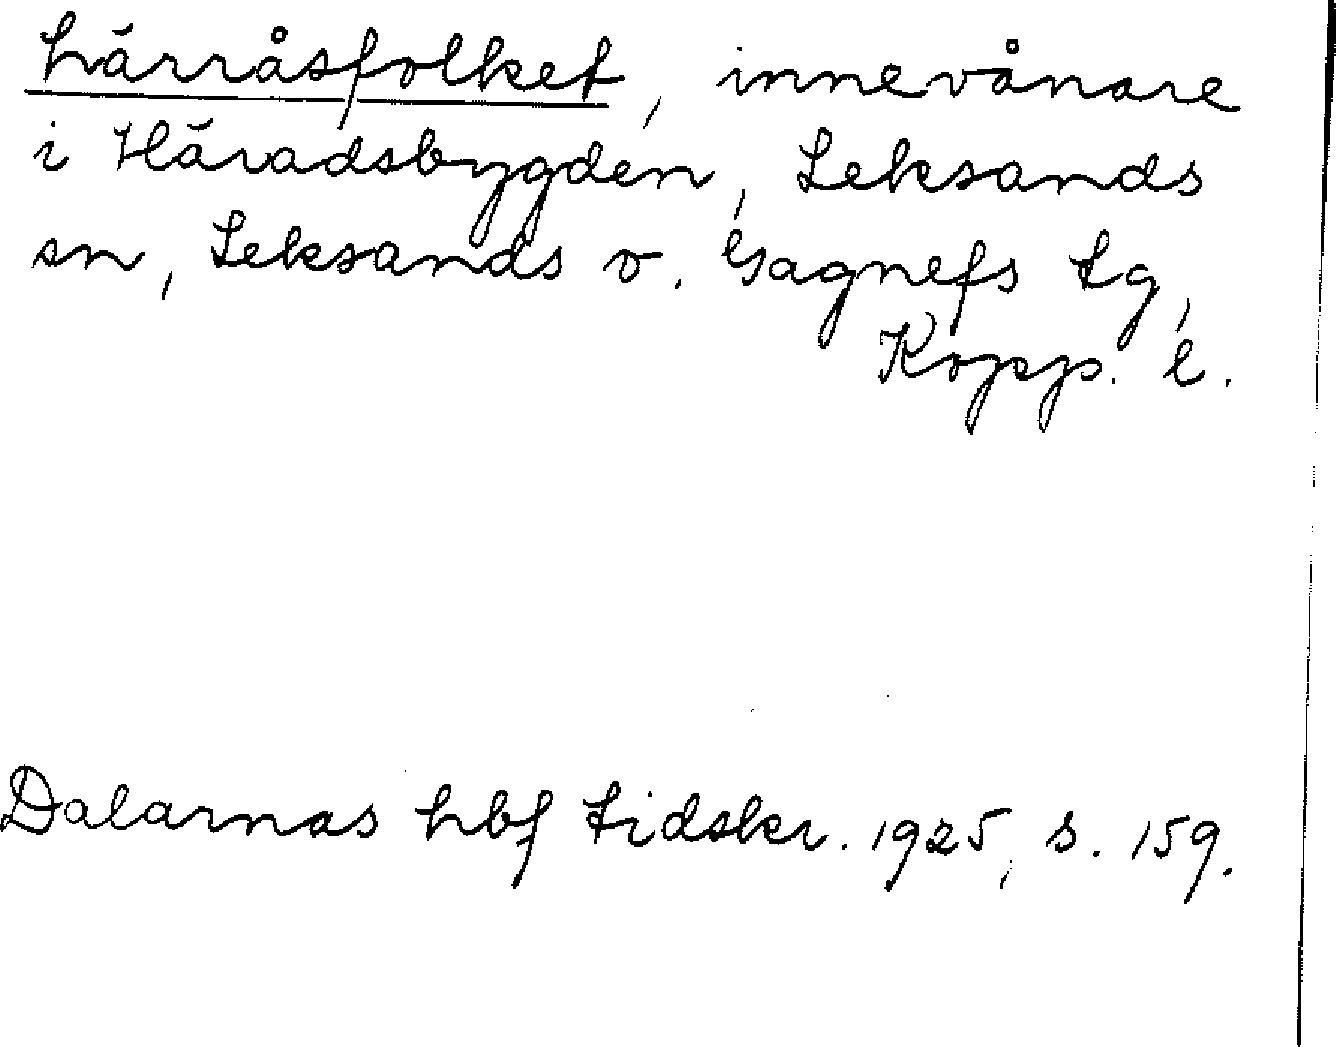 härråsfolket, innevånare
i Häradsbygden, Leksands
sn, Leksands o. Gagnefs tg,
Kopp. l.
Dalarnas hbf tidskr. 1925, s. 159.